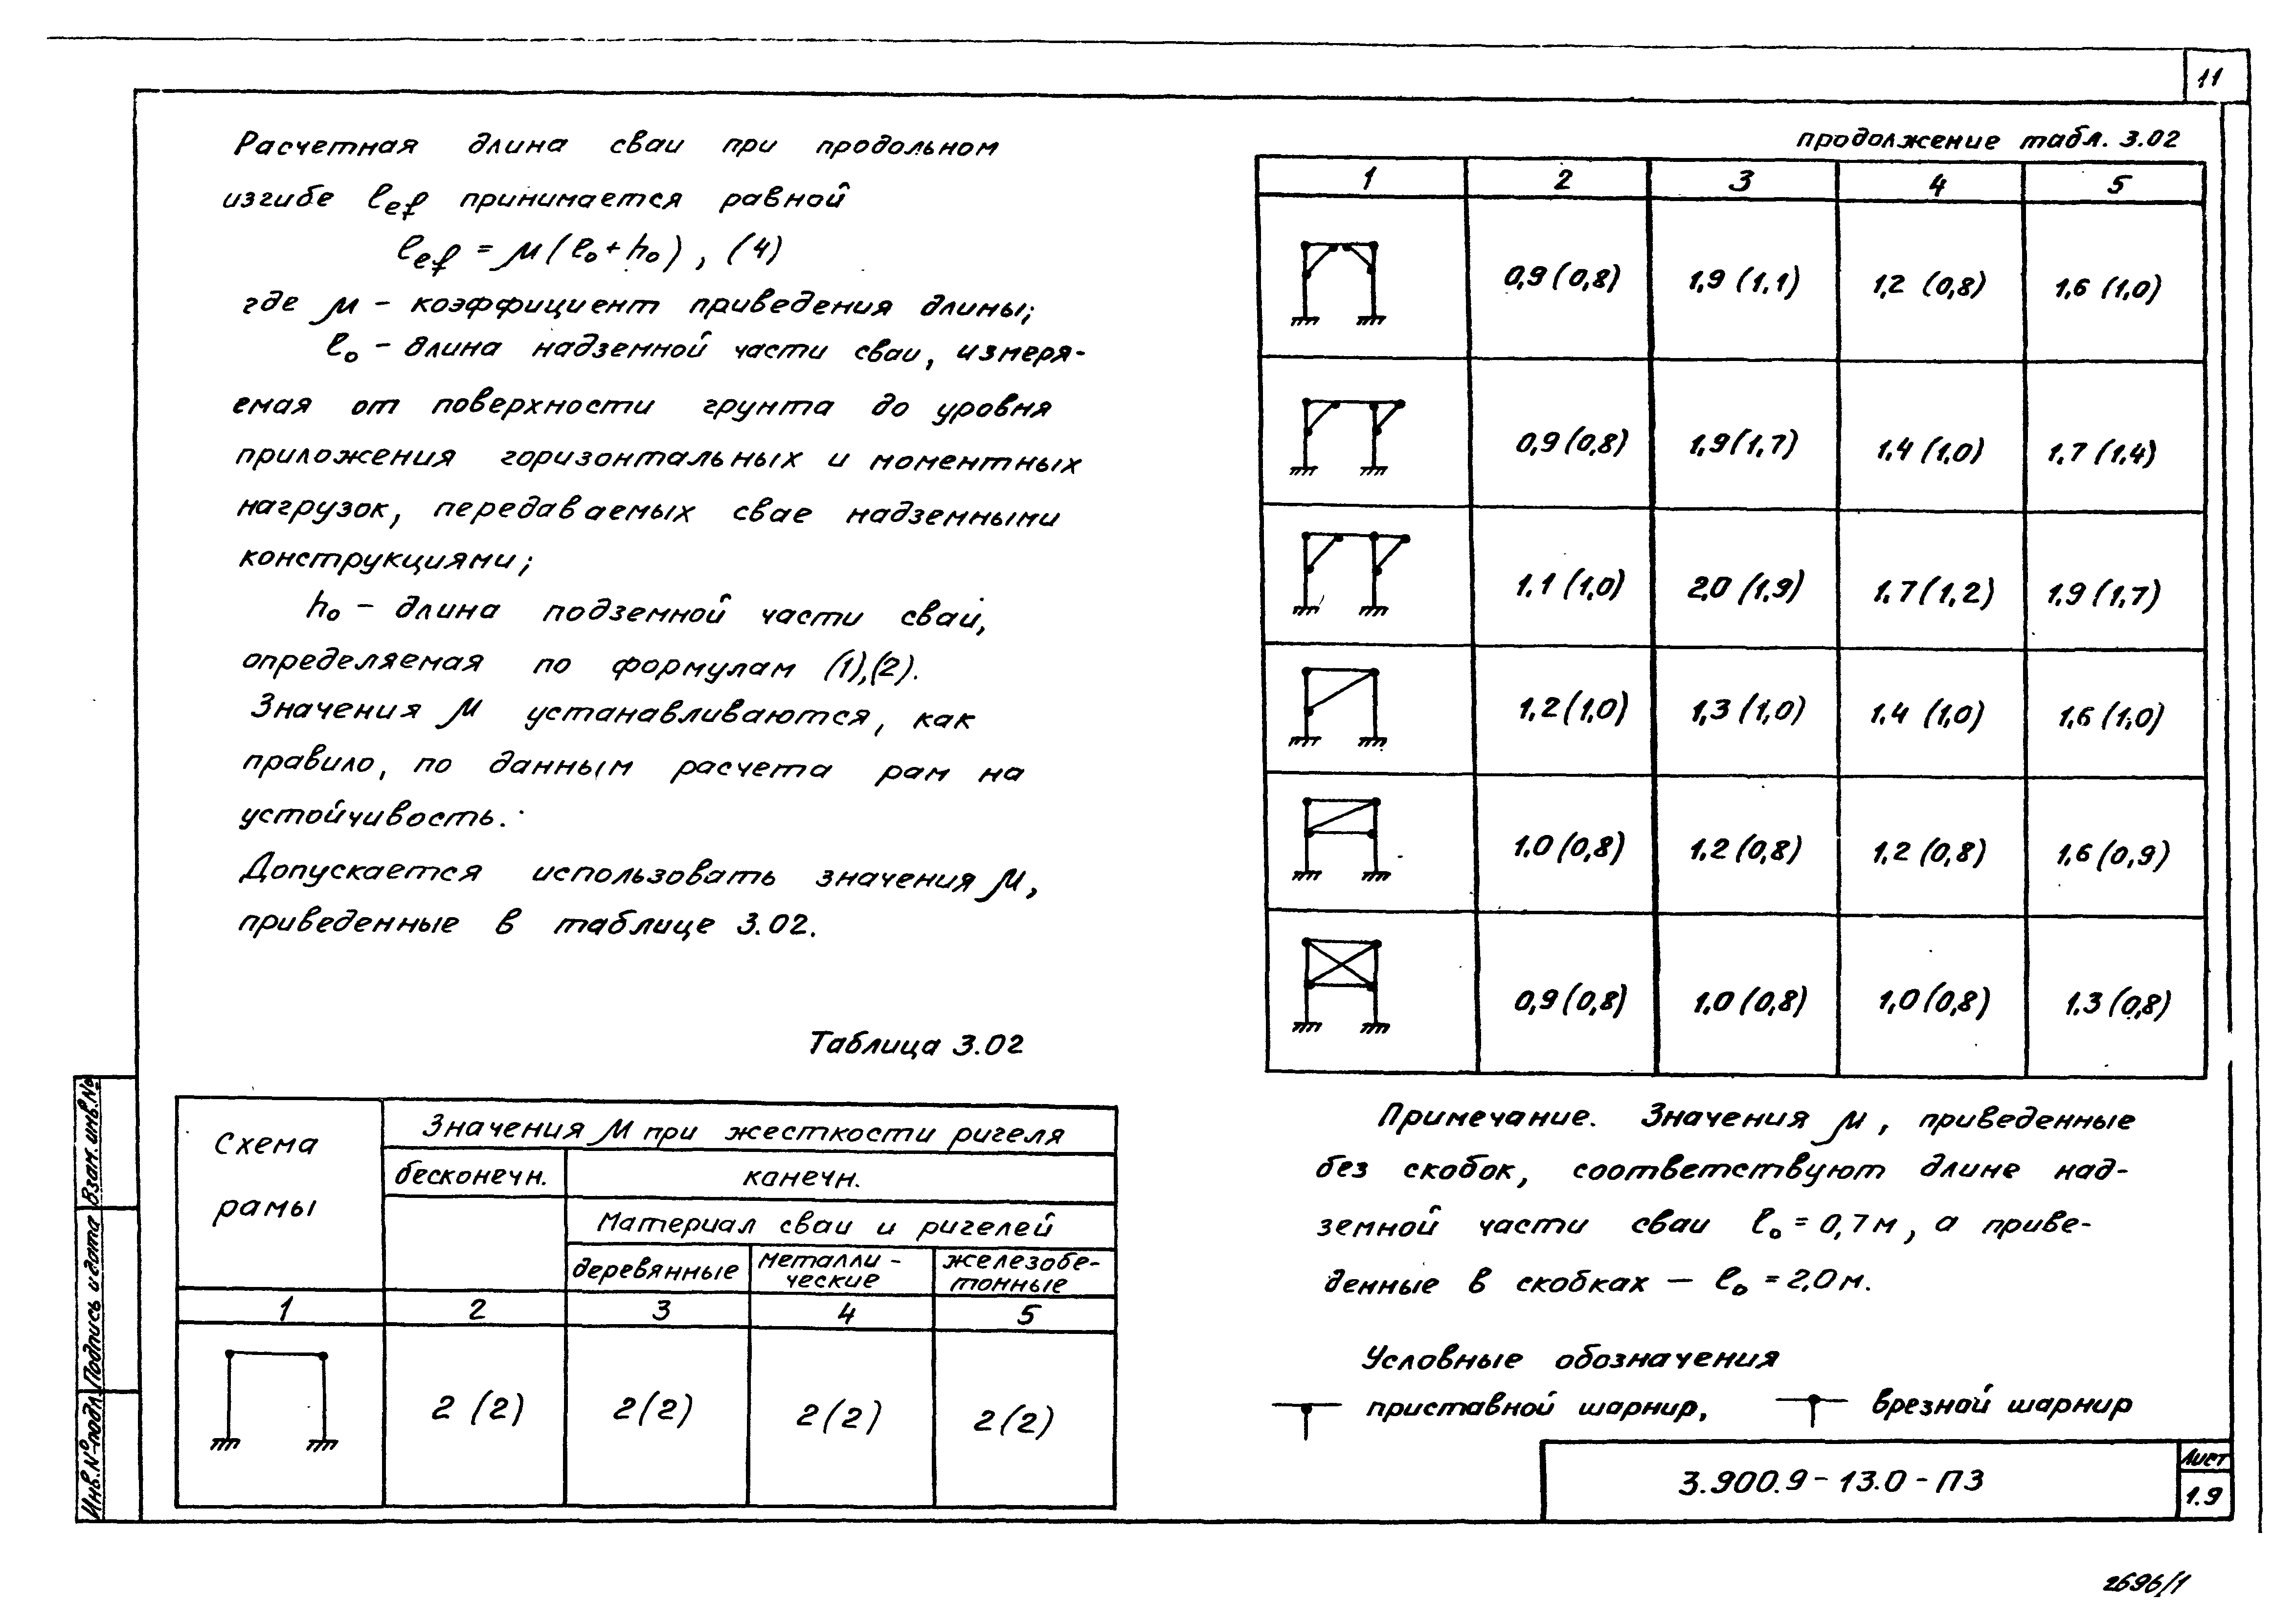 11
Расчетная длина сваи при продольном
изгибе ℓef принимается равной
ℓef = μ(ℓ₀+h₀), (4)
где μ – коэффициент приведения длины;
ℓ₀ – длина надземной части сваи, измеря-
емая от поверхности грунта до уровня
приложения горизонтальных и моментных
нагрузок, передаваемых свае надземными
конструкциями;
h₀ – длина подземной части сваи,
определяемая по формулам (1),(2).
Значения μ устанавливаются, как
правило, по данным расчета рам на
устойчивость.
Допускается использовать значения μ,
приведенные в таблице 3.02.
Таблица 3.02
Схема рамы
Значения μ при жесткости ригеля
бесконечн. канечн.
Материал сваи и ригелей
деревянные металли-ческие железобе-тонные
1 2 3 4 5
2 (2) 2(2) 2(2) 2(2)
продолжение табл. 3.02
1 2 3 4 5
0,9(0,8) 1,9(1,1) 1,2 (0,8) 1,6 (1,0)
0,9(0,8) 1,9(1,7) 1,4 (1,0) 1,7 (1,4)
1,1 (1,0) 2,0 (1,9) 1,7(1,2) 1,9 (1,7)
1,2(1,0) 1,3 (1,0) 1,4 (1,0) 1,6 (1,0)
1,0 (0,8) 1,2 (0,8) 1,2 (0,8) 1,6(0,9)
0,9(0,8) 1,0(0,8) 1,0(0,8) 1,3 (0,8)
Примечание. Значения μ, приведенные
без скобок, соответствуют длине над-
земной части сваи ℓ₀ = 0,7м, а приве-
денные в скобках – ℓ₀ = 2,0м.
Условные обозначения
приставной шарнир, врезной шарнир
3.900.9 – 13.0 – ПЗ
Лист
1.9
Инв.№подл. Подпись и дата Взам. инв.№
2696/1